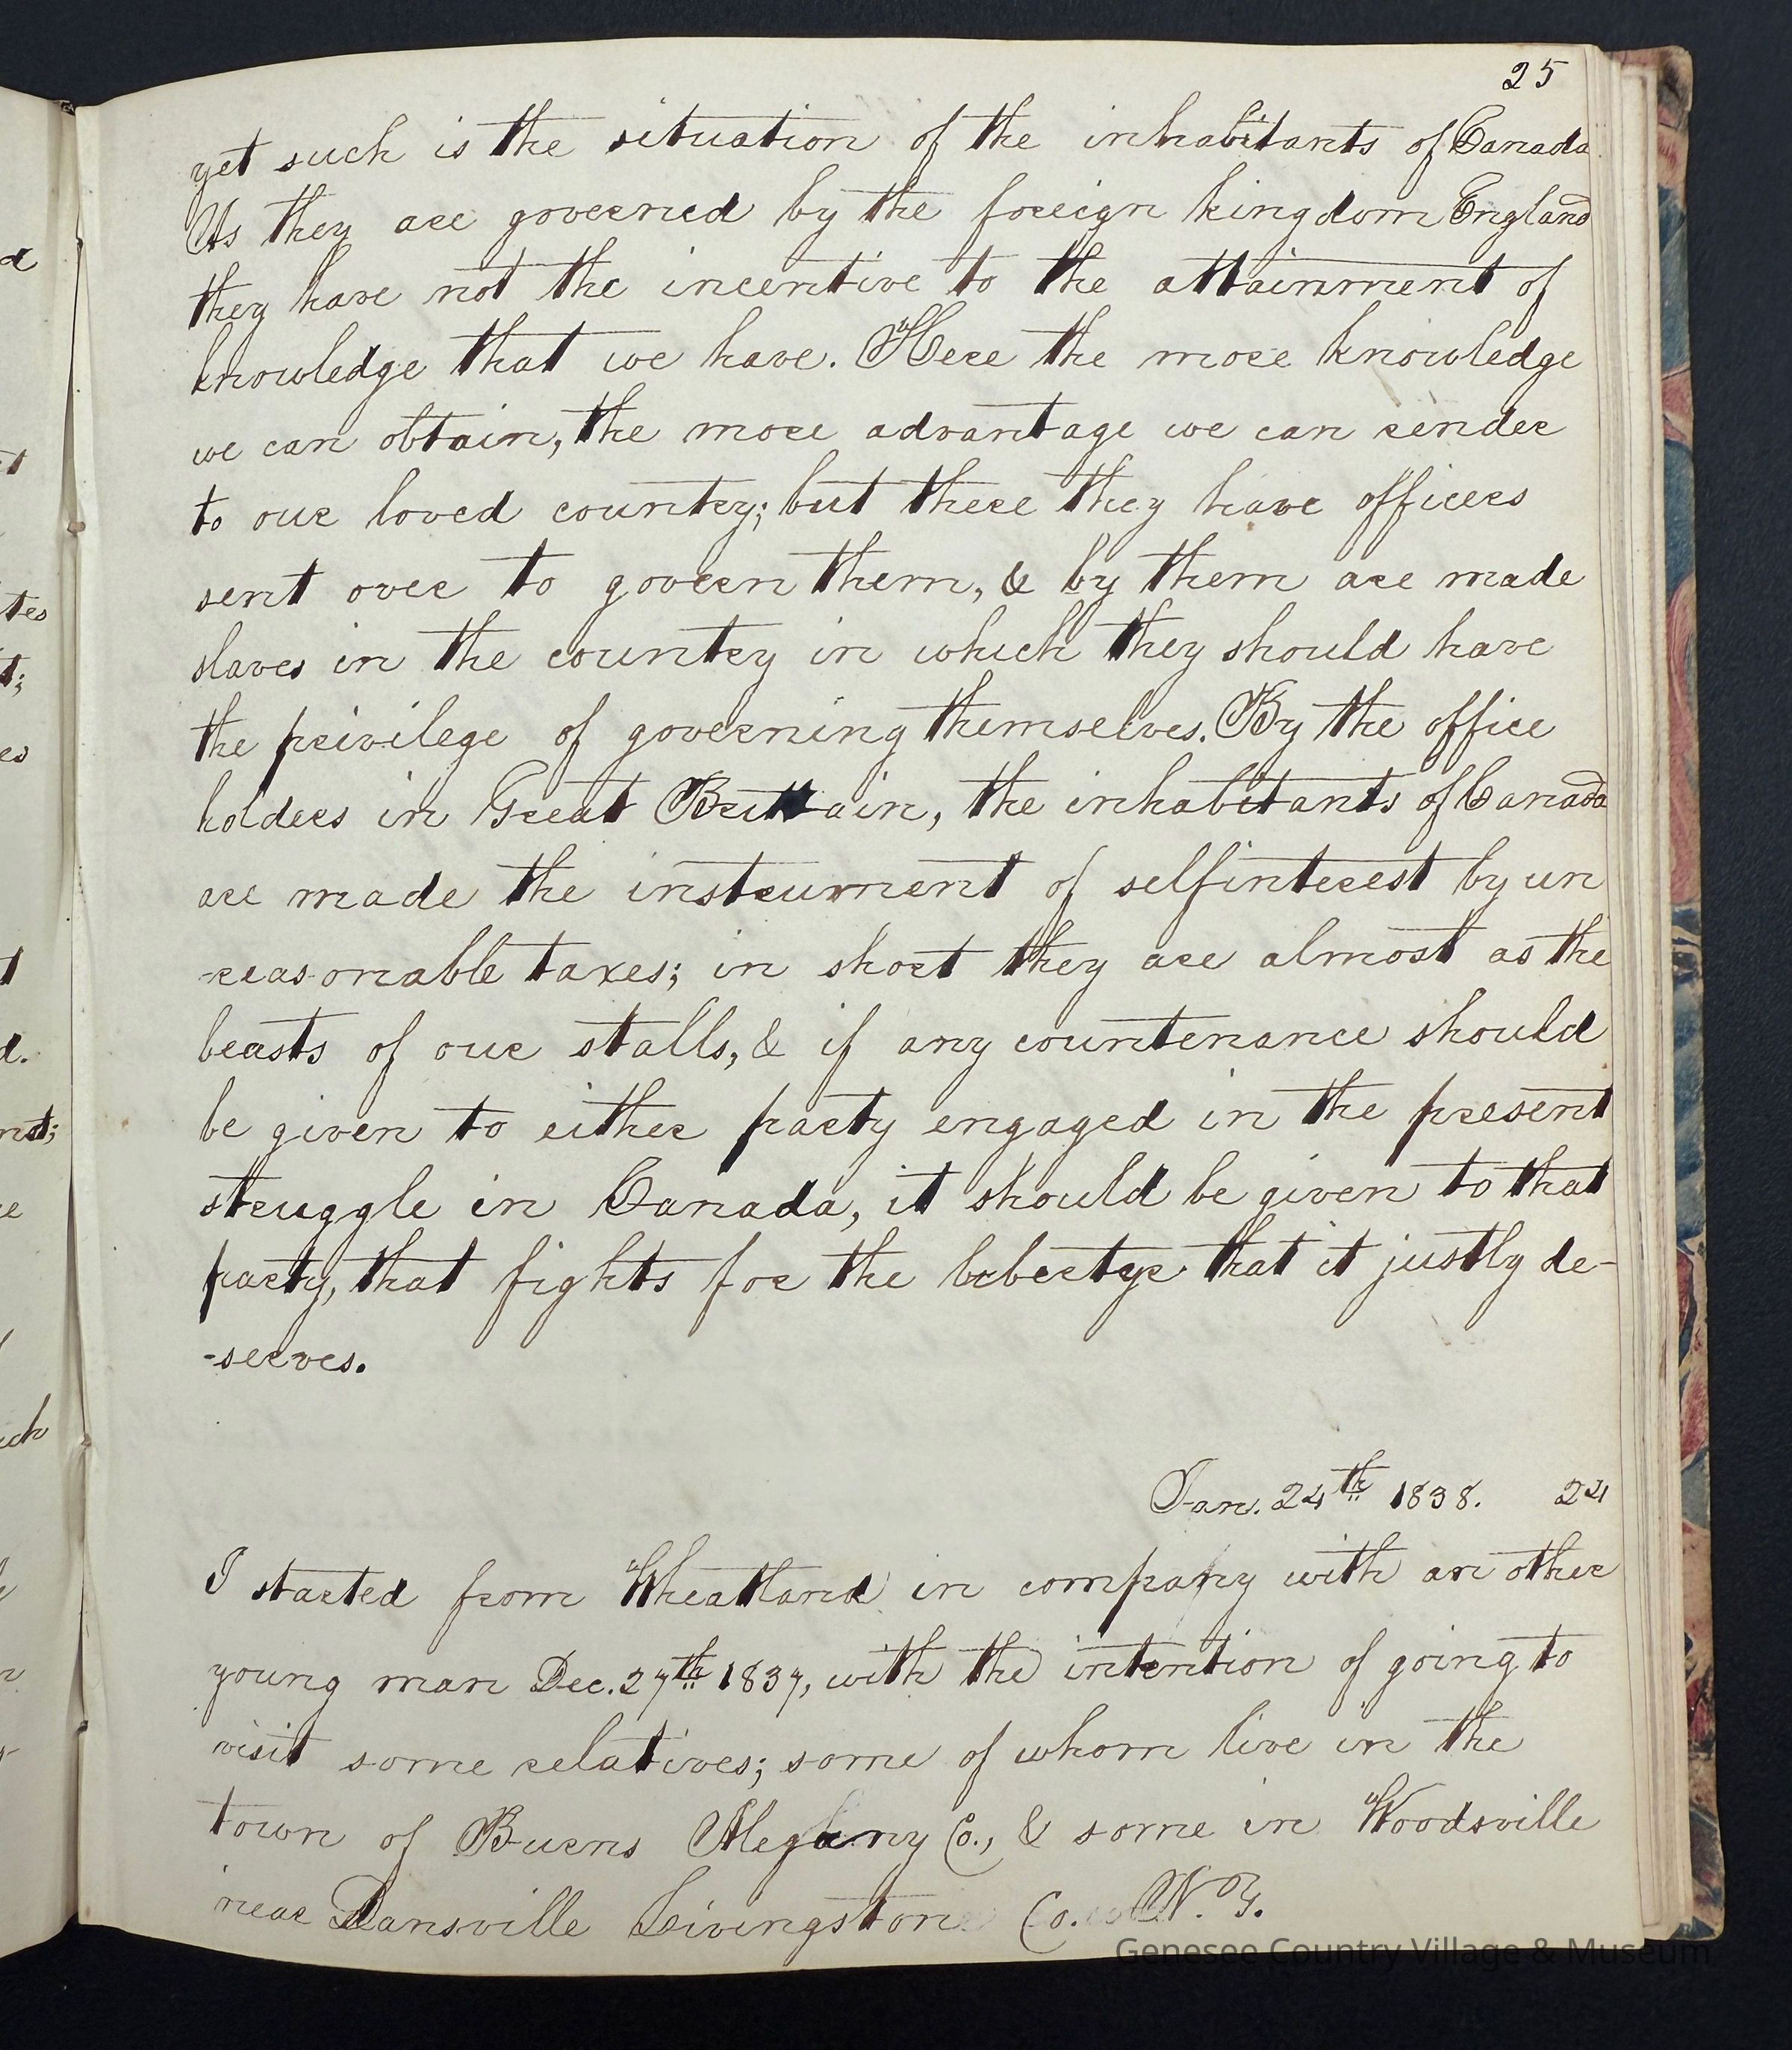 25
yet such is the situation of the inhabitants of Canada
As they are governed by the foreign kingdom England
they have not the incentive to the attainment of
knowledge that we have. Here the more knowledge
we can obtain, the more advantage we can render
to our loved country; but there they have officers
sent over to govern them, & by them are made
slaves in the country in which they should have
the privilege of governing themselves. By the office
holders in Great Brittain, the inhabitants of Canada
are made the instrument of selfinterest by un
-reasonable taxes; in short they are almost as the
beasts of our stalls, & if any countenance should
be given to either party engaged in the present
struggle in Canada, it should be given to that
party, that fights for the that it justly de-
-serves.
Jan. 24th 1838. 24
I started from Wheatland in company with an other
young man Dec. 27th 1837, with the intention of going to
visit some relatives; some of whom live in the
town of Burns Alegany Co., & some in Woodsville
near Dansville Livingston Co. N. Y.
Genesee Country Village & Museum